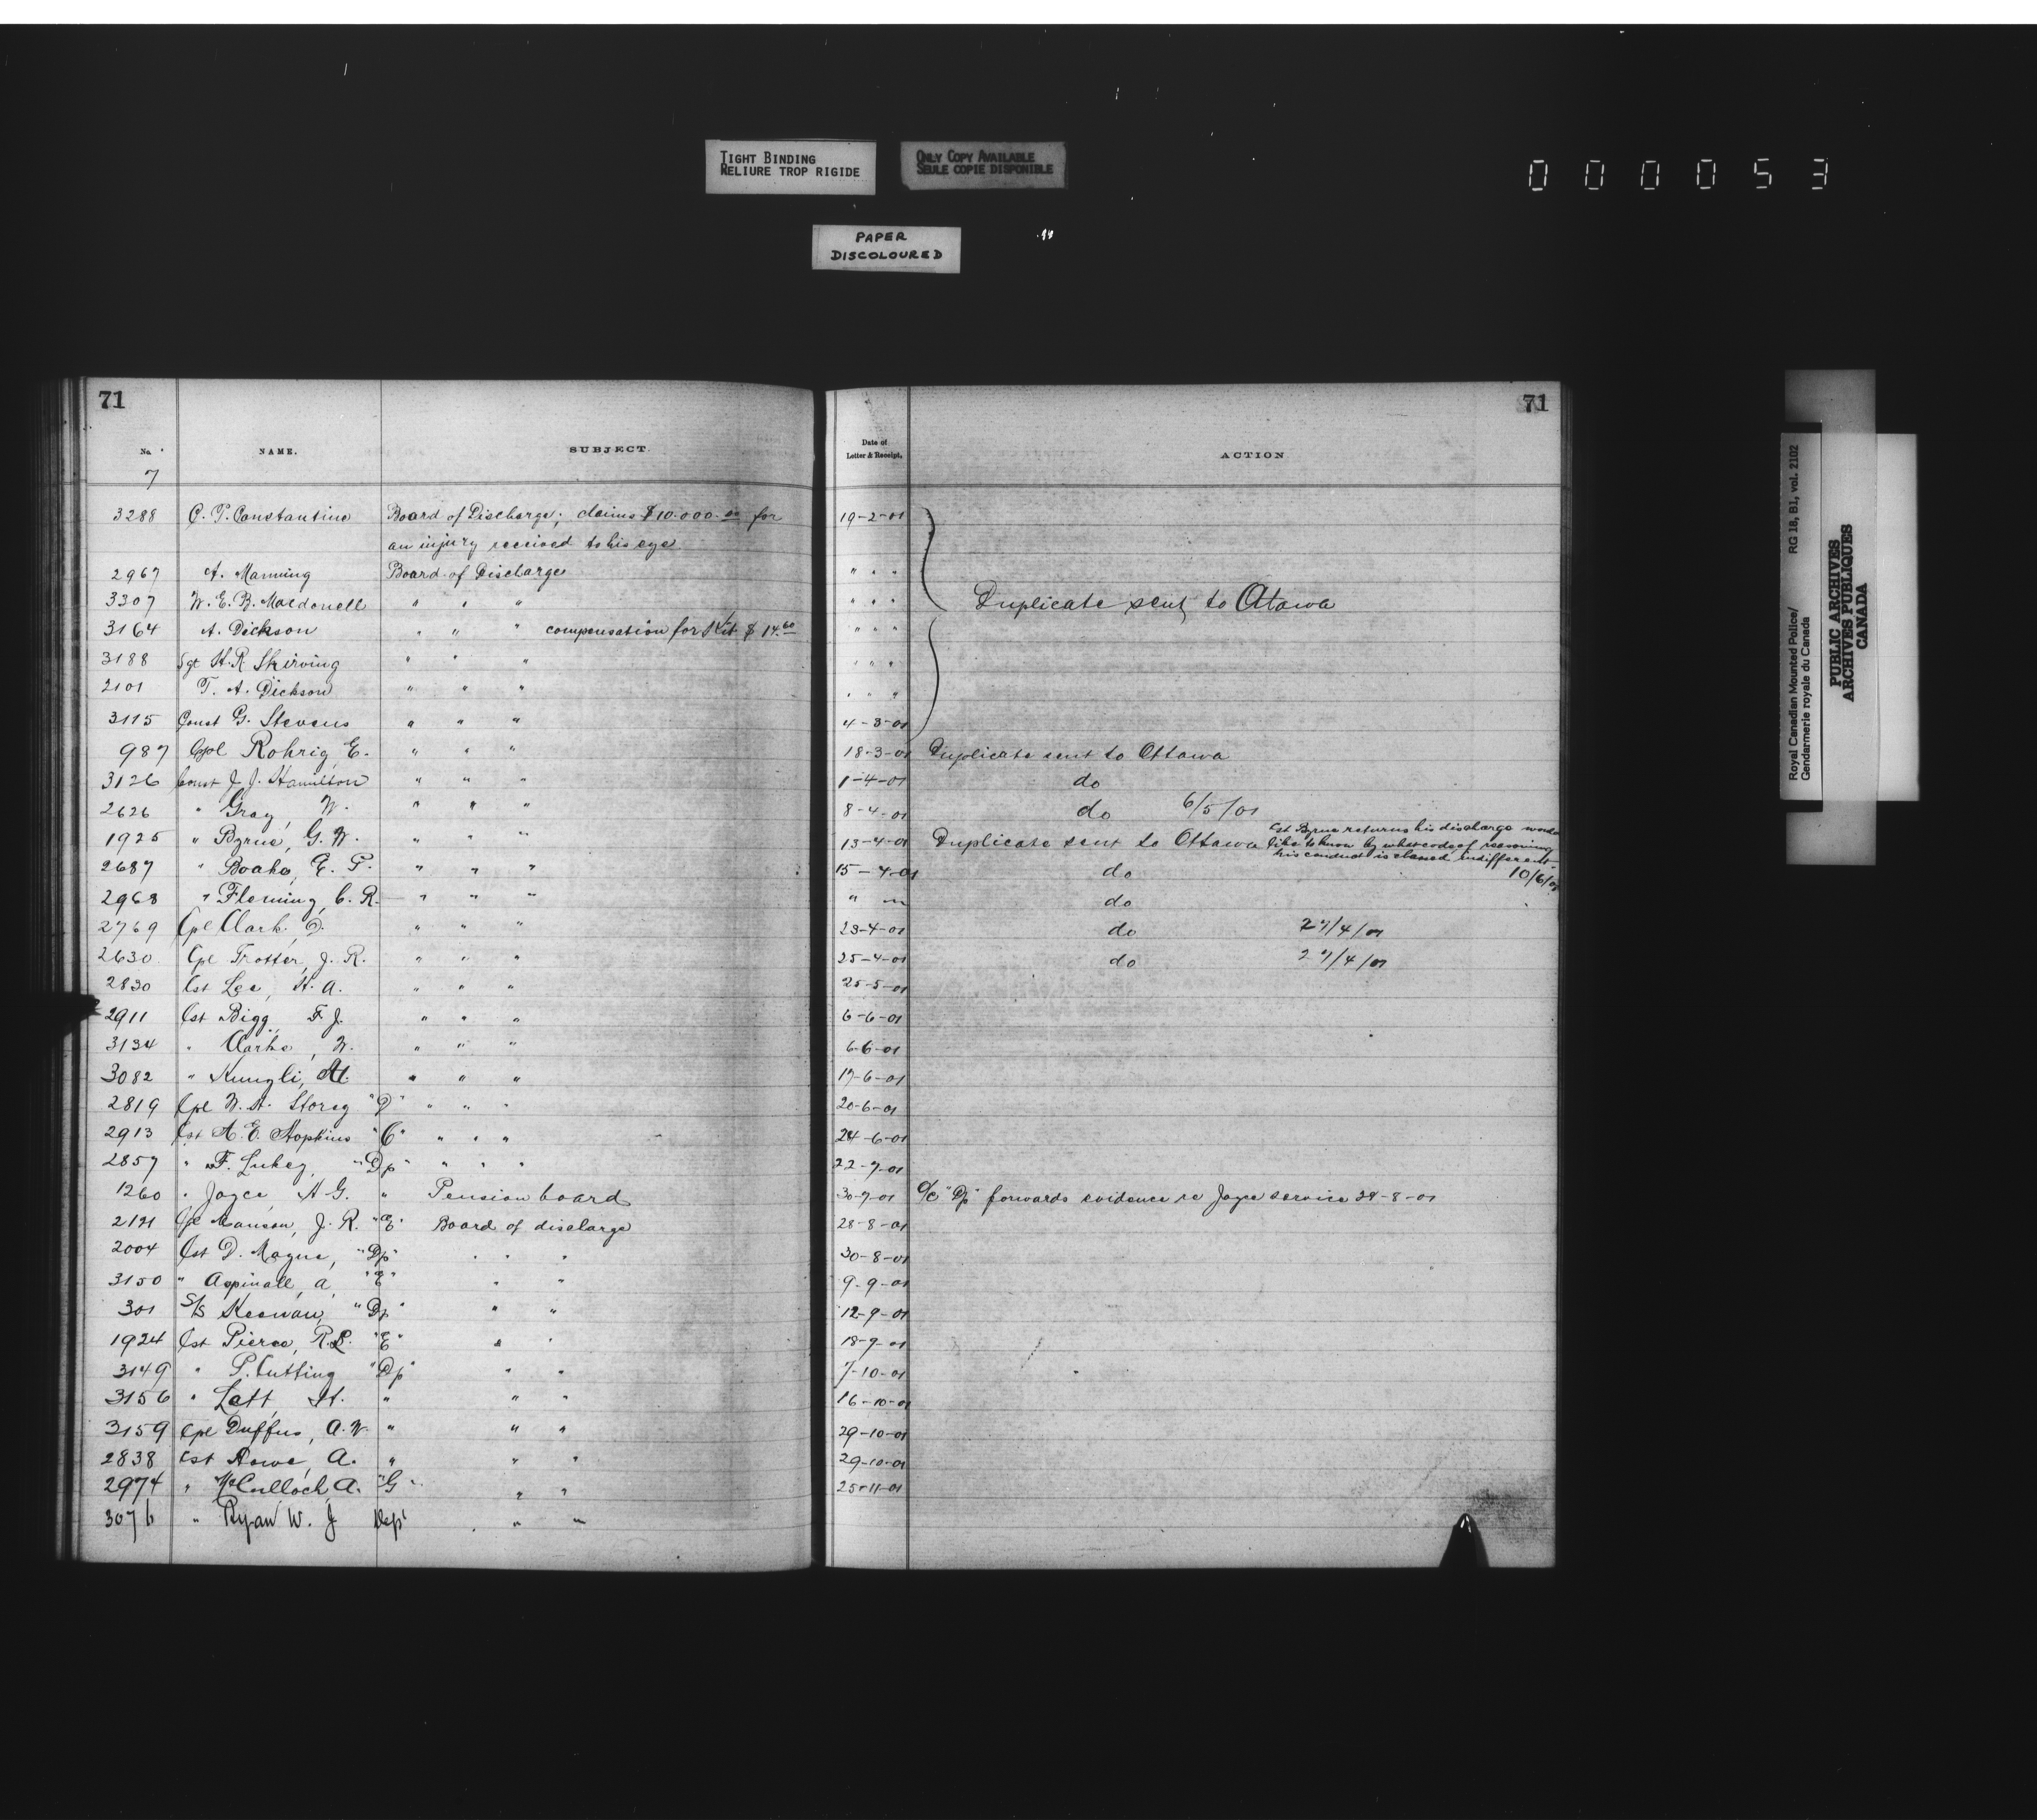 TIGHT BINDING
RELIURE TROP RIGIDE
ONLY COPY AVAILABLE
SEULE COPIE DISPONIBLE
000053
PAPER
DISCOLOURED
71 71
No. NAME. SUBJECT. Date of Letter & Receipt. ACTION
7
3288 C. P. Constantine Board of Discharge; claims $10.000.00 for 19-2-01
an injury received to his eye
2967 A. Manning Board of Discharge " " "
3307 W. E. B. Macdonell " " " " " " Duplicate sent to Otawa
3164 A. Dickson " " " compensation for Kit $14.60 " " "
3188 Sgt H. R Skirving " " " " " "
2101 T. A. Dickson " " " " " "
3115 Const G. Stevens " " " 4-3-01
987 Cpl Rohrig, E. " " " 18-3-01 Duplicate sent to Ottawa
3126 Const J. J. Hamilton " " " 1-4-01 do
2626 " Gray, W. " " " 8-4-01 do 6/5/01
1925 " Byrne, G. W. " " " 13-4-01 Duplicate sent to Ottawa Cst Byrne returns his discharge would
like to know by what code of reasoning
his conduct is classed indifferent.
10/6/01
2687 " Boake, E. P. " " " 15-4-01 do
2968 " Fleming, C. R. " " " " " do
2769 Cpl Clark, D. " " " 23-4-01 do 27/4/01
2630 Cpl Trotter, J. R. " " " 25-4-01 do 27/4/01
2830 Cst Lee, H. A. " " " 25-5-01
2911 Cst Bigg, F. J. " " " 6-6-01
3134 " Clarke, W. " " " 6-6-01
3082 " Kungli, " " " 17-6-01
2819 Cpl W. H. Storey "D" " " " 20-6-01
2913 Cst A. E. Hopkins "C" " " " 24-6-01
2857 " F. Lukey, "Dp" " " " 22-7-01
1260 " Joyce, A G. " Pension board 30-7-01 O/C "Dp" forwards evidence re Joyce service 28-8-01
2121 Cpl J. R. "E" Board of discharge 28-8-01
2004 Cst D. Magne, "Dp" " " " 30-8-01
3150 " Aspinall, A, "E" " " 9-9-01
301 S/S Keenan, "Dp" " " 12-9-01
1924 Cst Pierce, R. L. "E" " " 18-9-01
3149 " P. Cutting "Dp" " " 7-10-01
3156 " Lett, H. " " " 16-10-01
3159 Cpl Duffus, A. W. " " " 29-10-01
2838 Cst Rowe, A. " " " 29-10-01
2974 " McCulloch, A. "G" " " 25-11-01
3076 " Ryan W. J Dep' " "
Royal Canadian Mounted Police/ RG 18, B1, vol. 2102
Gendarmerie royale du Canada
PUBLIC ARCHIVES
ARCHIVES PUBLIQUES
CANADA